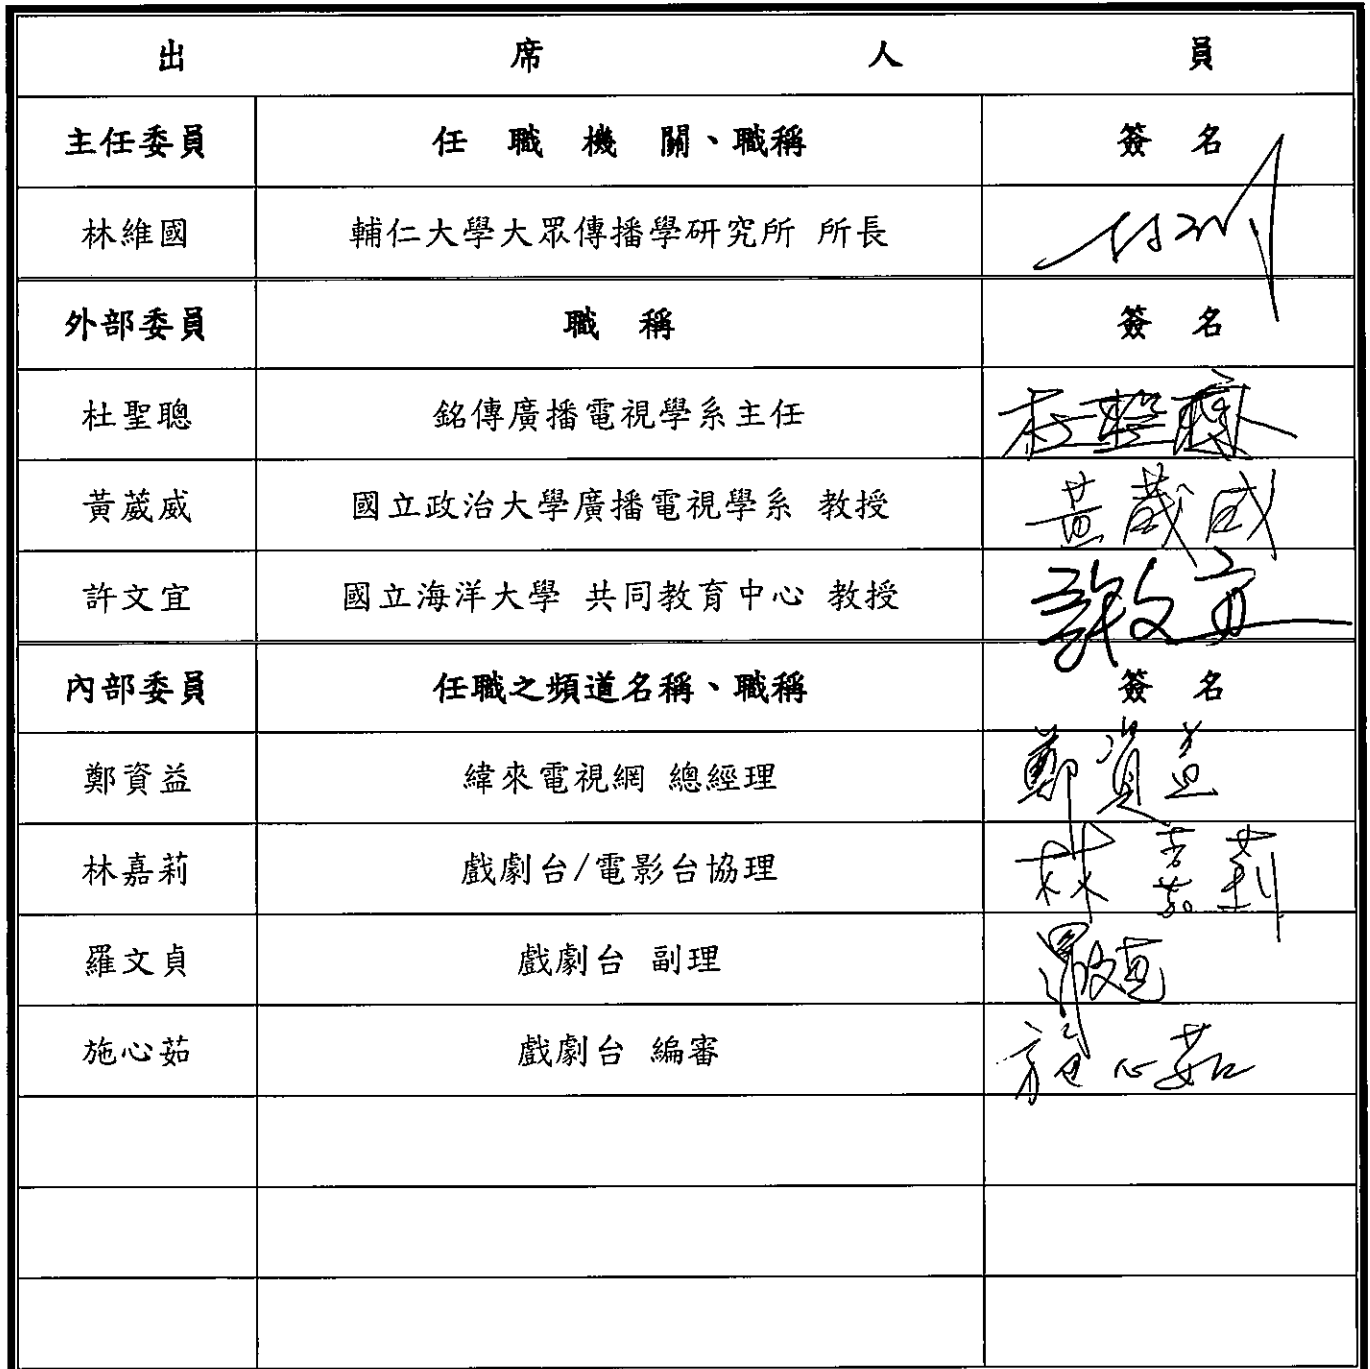 出 席 人 員
主任委員 任 職 機 關、職稱 簽 名
林維國 輔仁大學大眾傳播學研究所 所長
外部委員 職 稱 簽 名
杜聖聰 銘傳廣播電視學系主任 杜聖聰
黃葳威 國立政治大學廣播電視學系 教授 黃葳威
許文宜 國立海洋大學 共同教育中心 教授 許文宜
內部委員 任職之頻道名稱、職稱 簽 名
鄭資益 緯來電視網 總經理 鄭資益
林嘉莉 戲劇台/電影台協理 林嘉莉
羅文貞 戲劇台 副理 羅文貞
施心茹 戲劇台 編審 施心茹